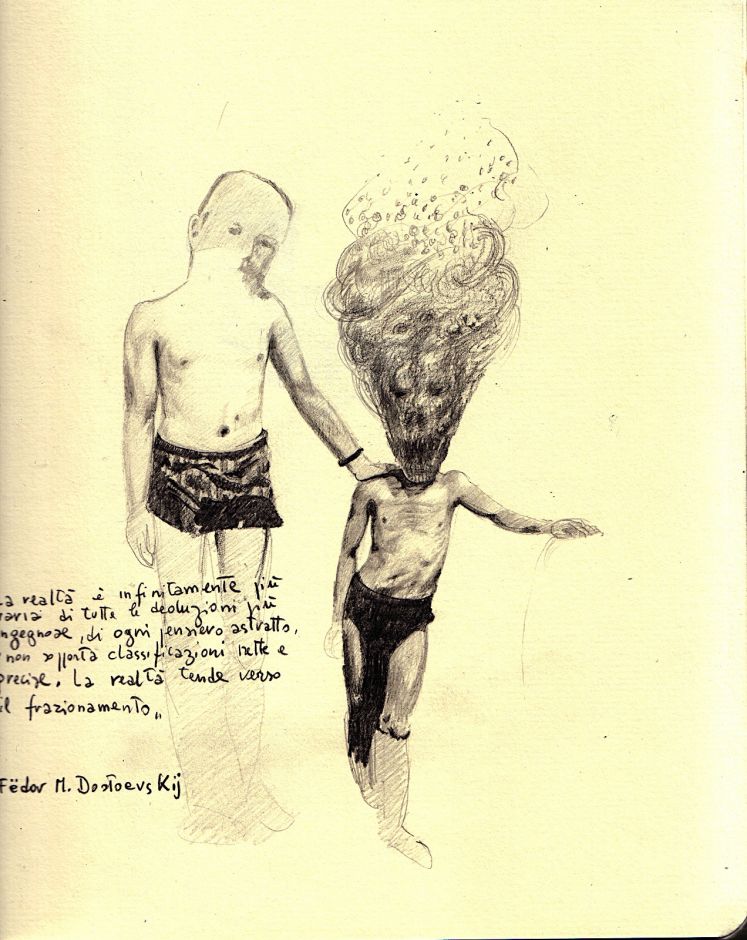 La realtà è infinitamente più
varia di tutte le deduzioni più
ingegnose, di ogni pensiero astratto,
non sopporta classificazioni nette e
precise. La realtà tende verso
il frazionamento„
Fëdor M. Dostoevskij